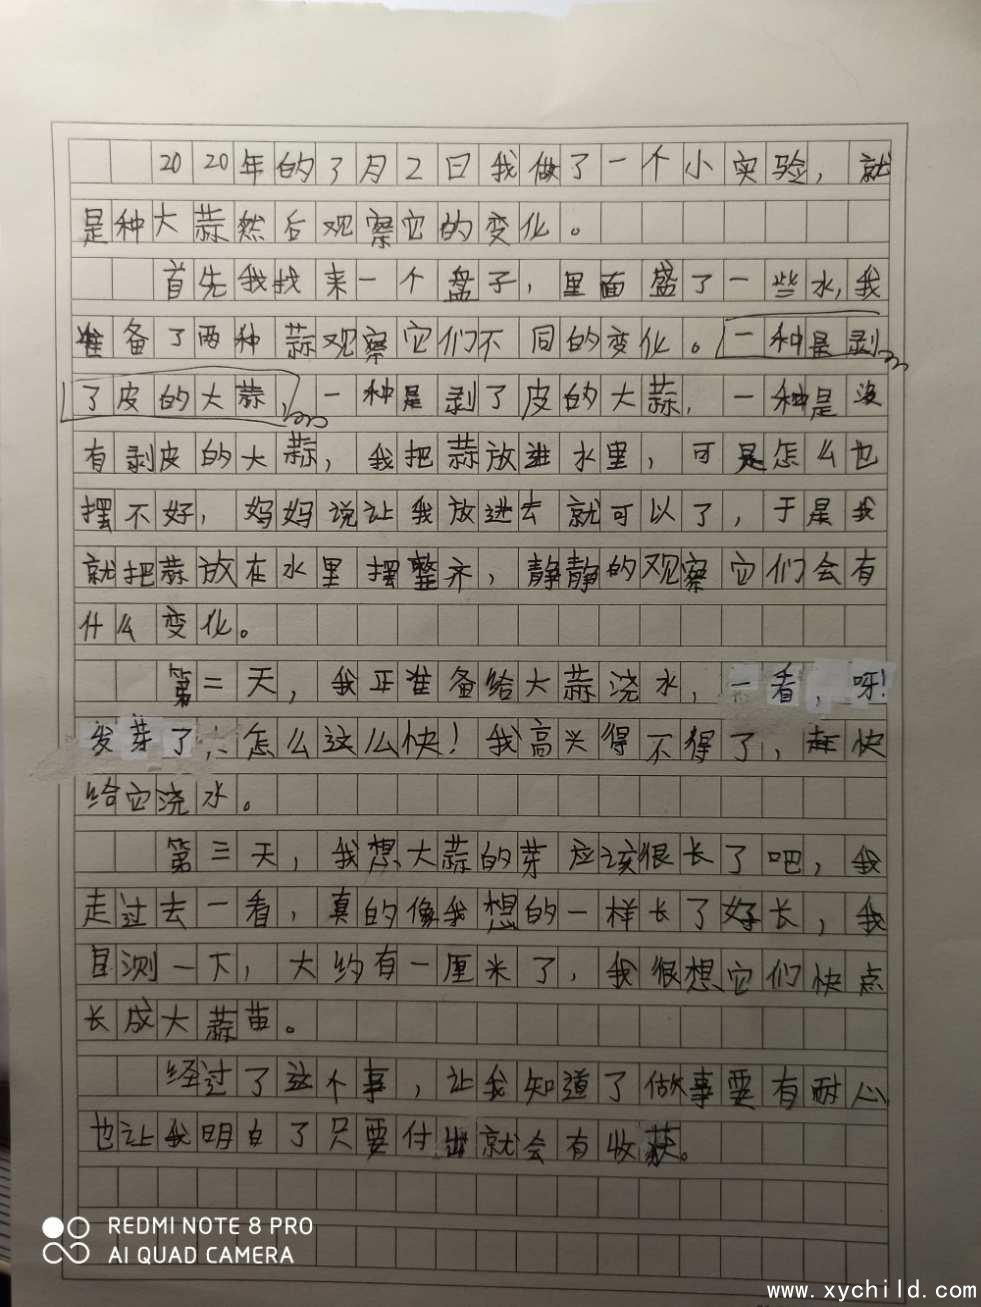 2020年的7月2日我做了一个小实验，就
是种大蒜然后观察它的变化。
首先我找来一个盘子，里面盛了一些水，我
准备了两种蒜观察它们不同的变化。一种是剥
了皮的大蒜，一种是剥了皮的大蒜，一种是没
有剥皮的大蒜，我把蒜放进水里，可是怎么也
摆不好，妈妈说让我放进去就可以了，于是我
就把蒜放在水里摆整齐，静静的观察它们会有
什么变化。
第二天，我正准备给大蒜浇水，一看，呀！
发芽了，怎么这么快！我高兴得不得了，赶快
给它浇水。
第三天，我想大蒜的芽应该很长了吧，我
走过去一看，真的像我想的一样长了好长，我
目测一下，大约有一厘米了，我很想它们快点
长成大蒜苗。
经过了这个事，让我知道了做事要有耐心
也让我明白了只要付出就会有收获。
REDMI NOTE 8 PRO
AI QUAD CAMERA
www.xychild.com